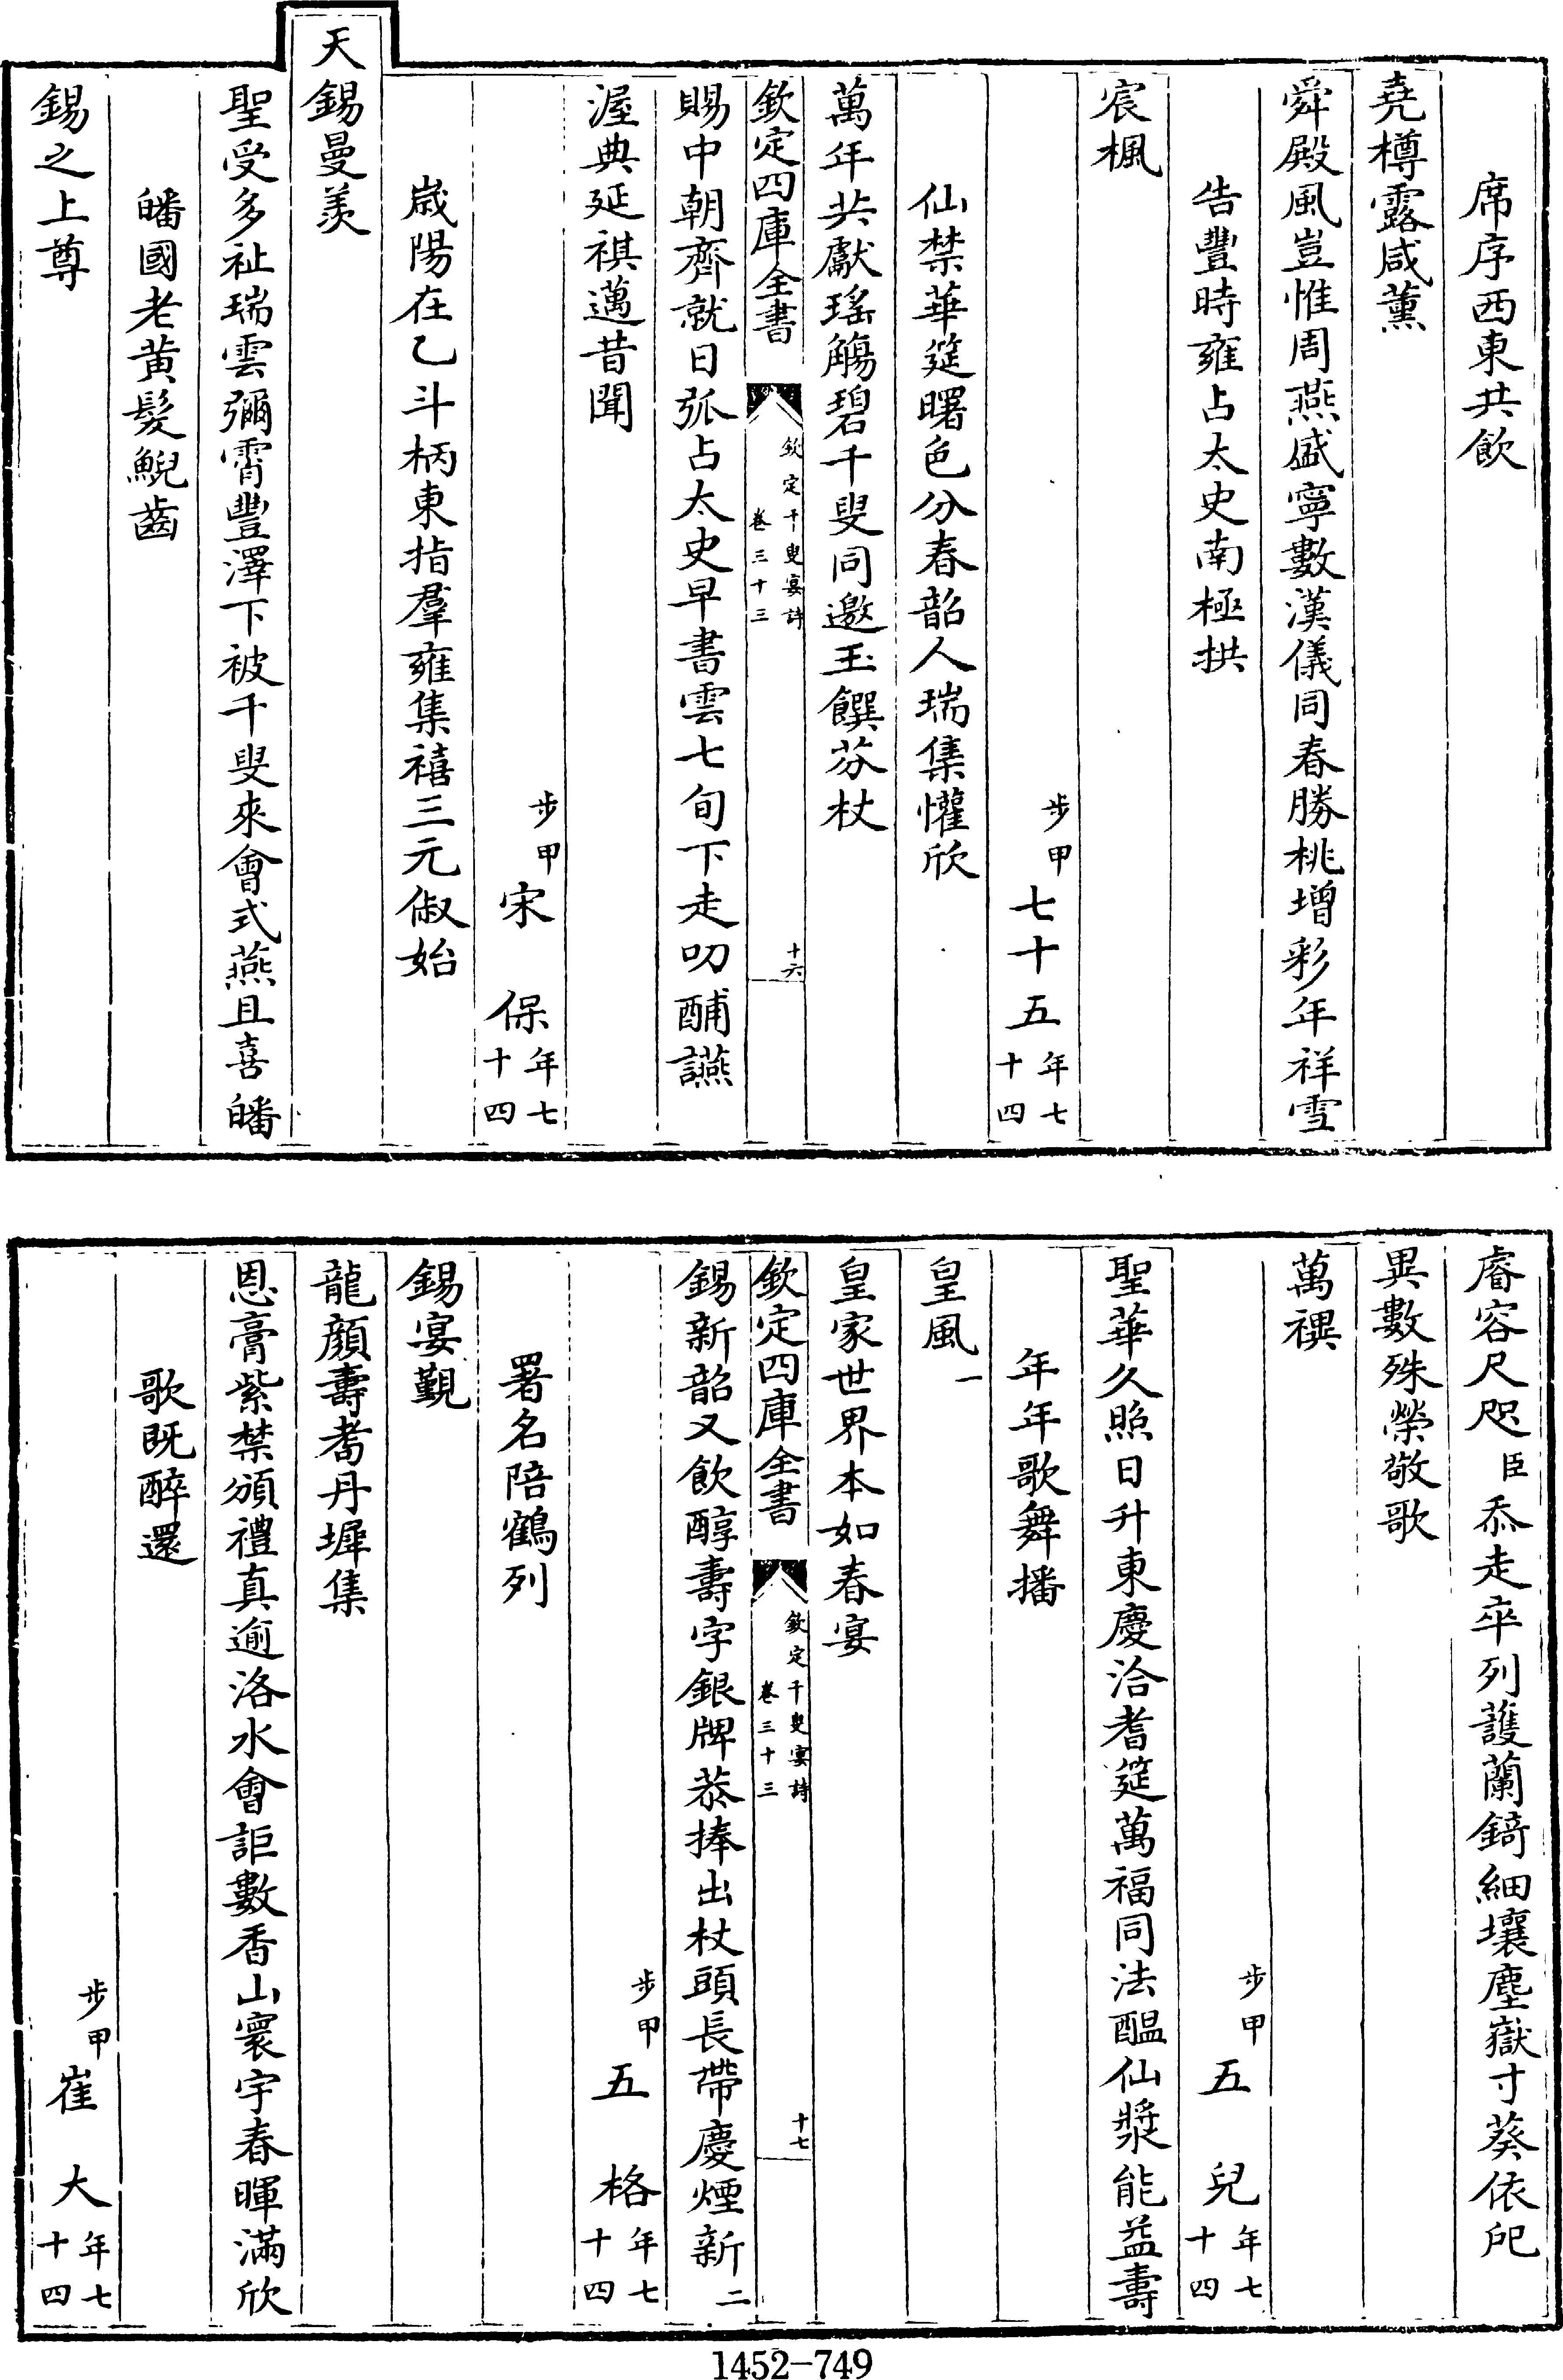 席序西東共飲
堯樽露咸薰
舜殿風豈惟周燕盛寧數漢儀同春勝桃增彩年祥雪
告豐時雍占太史南極拱
宸楓
步甲七十五年七十四
仙禁華筵曙色分春韶人瑞集懽欣
萬年共獻瑤觴碧千叟同邀玉饌芬杖
欽定四庫全書
欽定千叟宴詩
卷三十三
十六
賜中朝齊就日弧占太史早書雲七旬下走叨酺讌
渥典延祺邁昔聞
步甲宋 保年七十四
歲陽在乙斗柄東指羣雍集禧三元俶始
天錫曼羨
聖受多祉瑞雲彌霄豐澤下被千叟來會式燕且喜皤
皤國老黃髮鯢齒
錫之上尊
睿容尺咫臣忝走卒列護蘭錡細壤塵嶽寸葵依戺
異數殊榮敬歌
萬禩
步甲五 兒年七十四
聖華久照日升東慶洽耆筵萬福同法醞仙漿能益壽
年年歌舞播
皇風一
皇家世界本如春宴
欽定四庫全書
欽定千叟宴詩
卷三十三
十七
錫新韶又飲醇壽字銀牌恭捧出杖頭長帶慶煙新二
步甲五 格年七十四
署名陪鶴列
錫宴覲
龍顏壽耈丹墀集
恩膏紫禁頒禮真逾洛水會詎數香山寰宇春暉滿欣
歌既醉還
步甲崔 大年七十四
1452-749